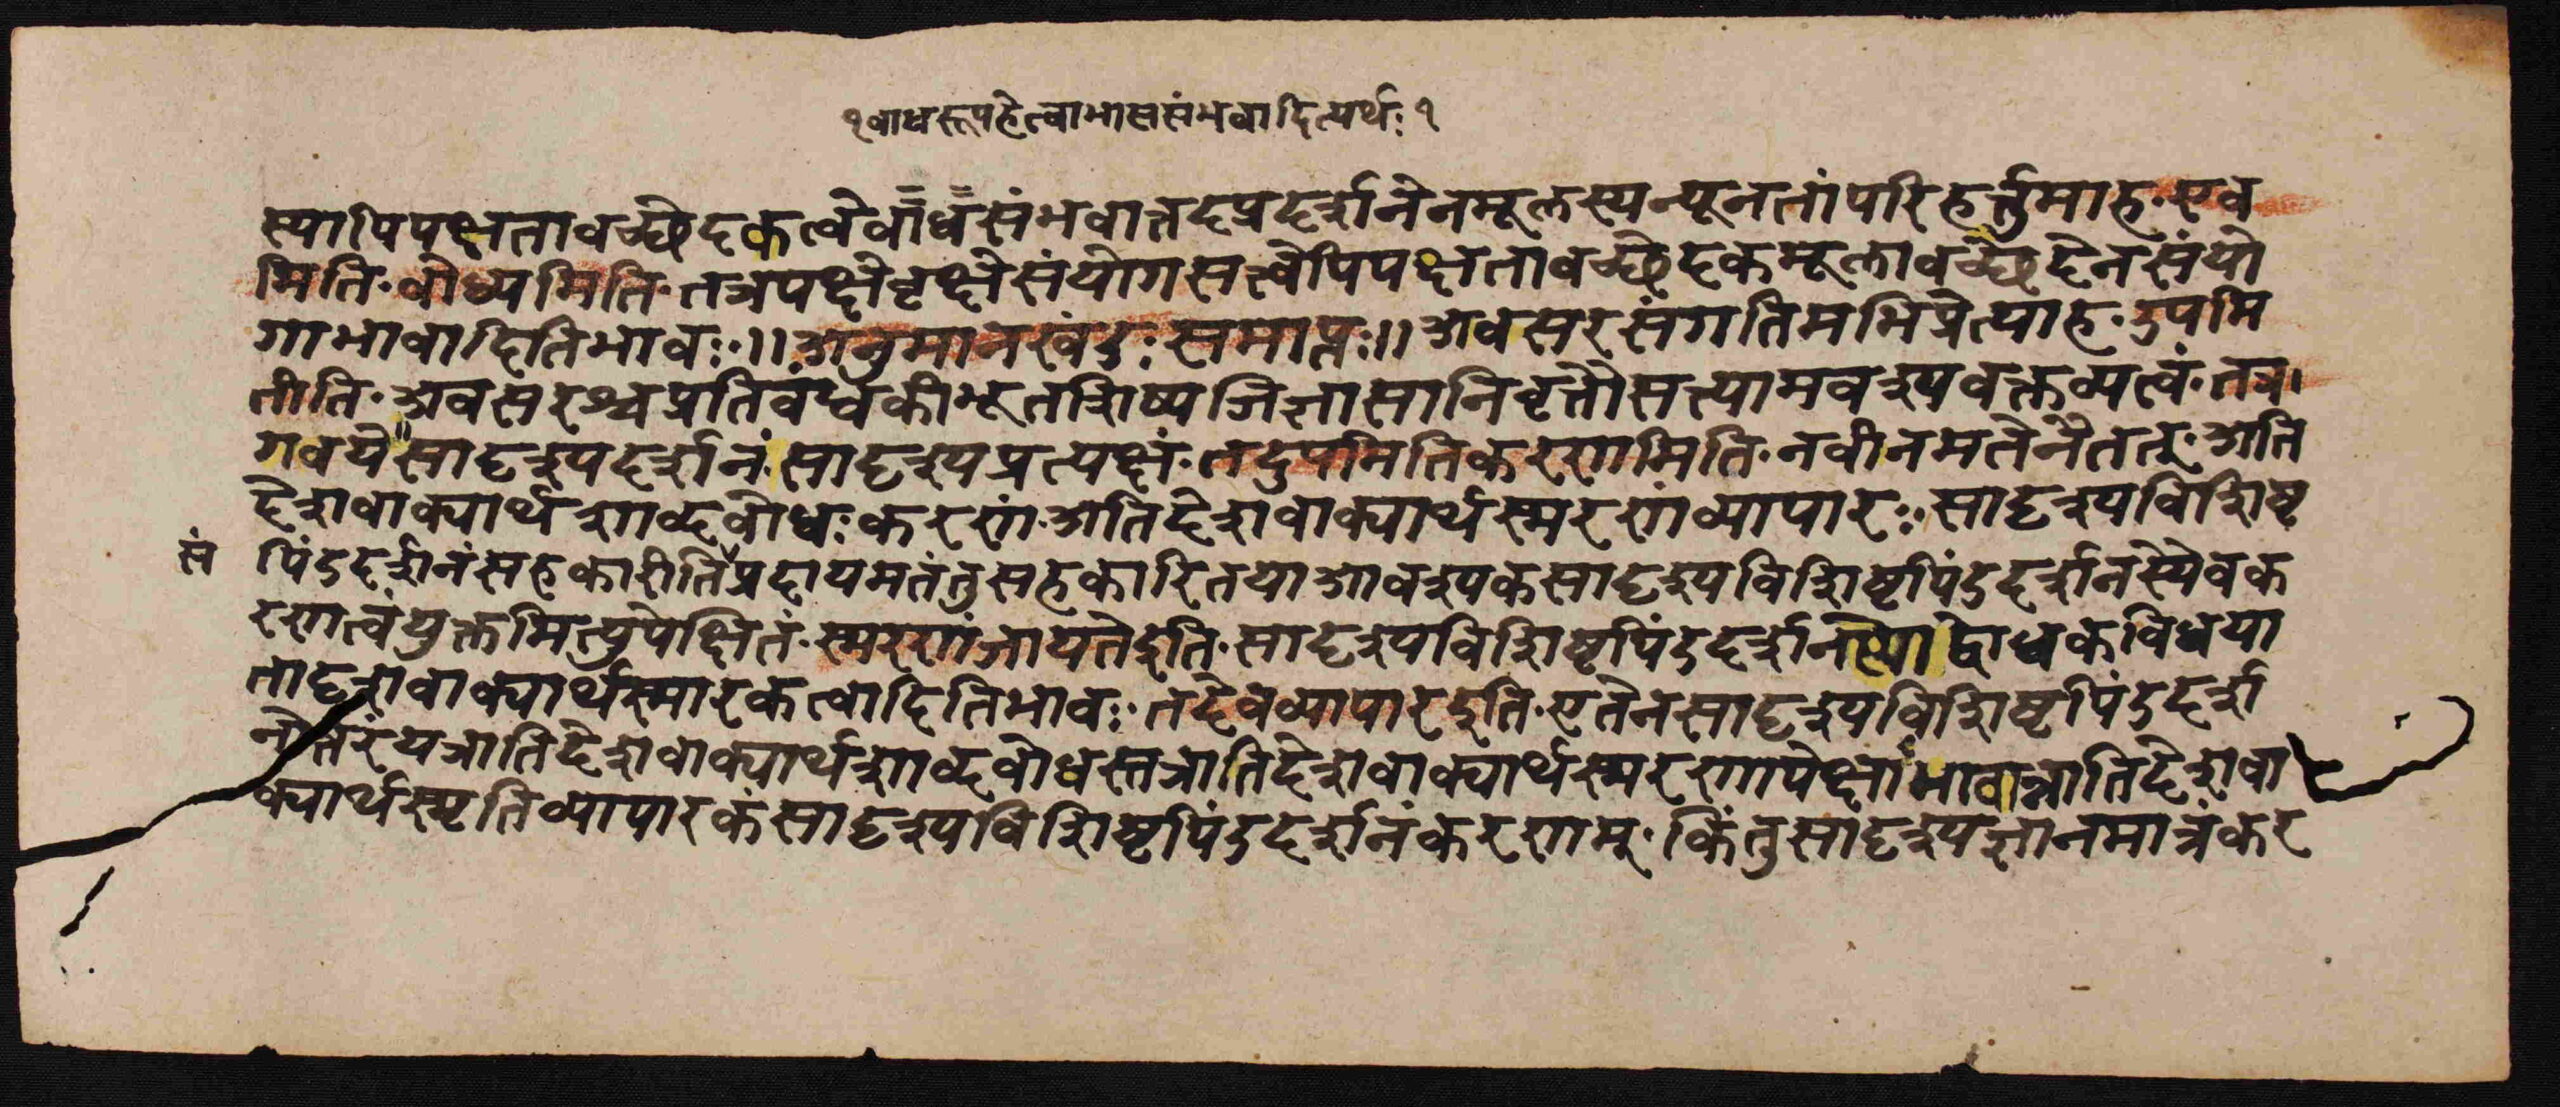 १ बाधरूपहेत्वाभाससंभवादित्यर्थः १
स्यापिपक्षतावच्छेदकत्वेबाधसंभवात्तदप्रदर्शनेनमूलस्यन्यूनतांपरिहर्त्तुमाह॰ एव
मिति॰ बोध्यमिति॰ तत्रपक्षेवृक्षेसंयोगसत्त्वेपिपक्षतावच्छेदकमूलावच्छेदेनसंयो
गाभावादितिभावः॰ ॥ अनुमानखंडः समाप्तः ॥ अवसरसंगतिमभिप्रेत्याह॰ उपमि
तीति॰ अवसरश्चप्रतिबंधकीभूतशिष्यजिज्ञासानिवृत्तौसत्यामवश्यवक्तव्यत्वं॰ तत्र।
गवयेसादृश्यदर्शनं॰ सादृश्यप्रत्यक्षं॰ तदुपमितिकरणमिति॰ नवीनमतेनैतत्॰ अति
देशवाक्यार्थशाब्दबोधः करणं॰ अतिदेशवाक्यार्थस्मरणंव्यापारः॰ सादृश्यविशिष्ट
सं
पिंडदर्शनंसहकारीतिप्रदायमतंतुसहकारितयाआवश्यकसादृश्यविशिष्टपिंडदर्शनस्यैवक
रणत्वंयुक्तमित्युपेक्षितं॰ स्मरणंजायतेइति॰ सादृश्यविशिष्टपिंडदर्शनस्योद्बोधकविधया
तादृशवाक्यार्थस्मारकत्वादितिभावः॰ तदेवव्यापारइति॰ एतेनसादृश्यविशिष्टपिंडदर्श
नोत्तरंयत्रातिदेशवाक्यार्थशाब्दबोधस्तत्रातिदेशवाक्यार्थस्मरणापेक्षाभावान्नातिदेशवा
क्यार्थस्मृतिव्यापारकंसादृश्यविशिष्टपिंडदर्शनंकरणम्॰ किंतुसादृश्यज्ञानमात्रंकर